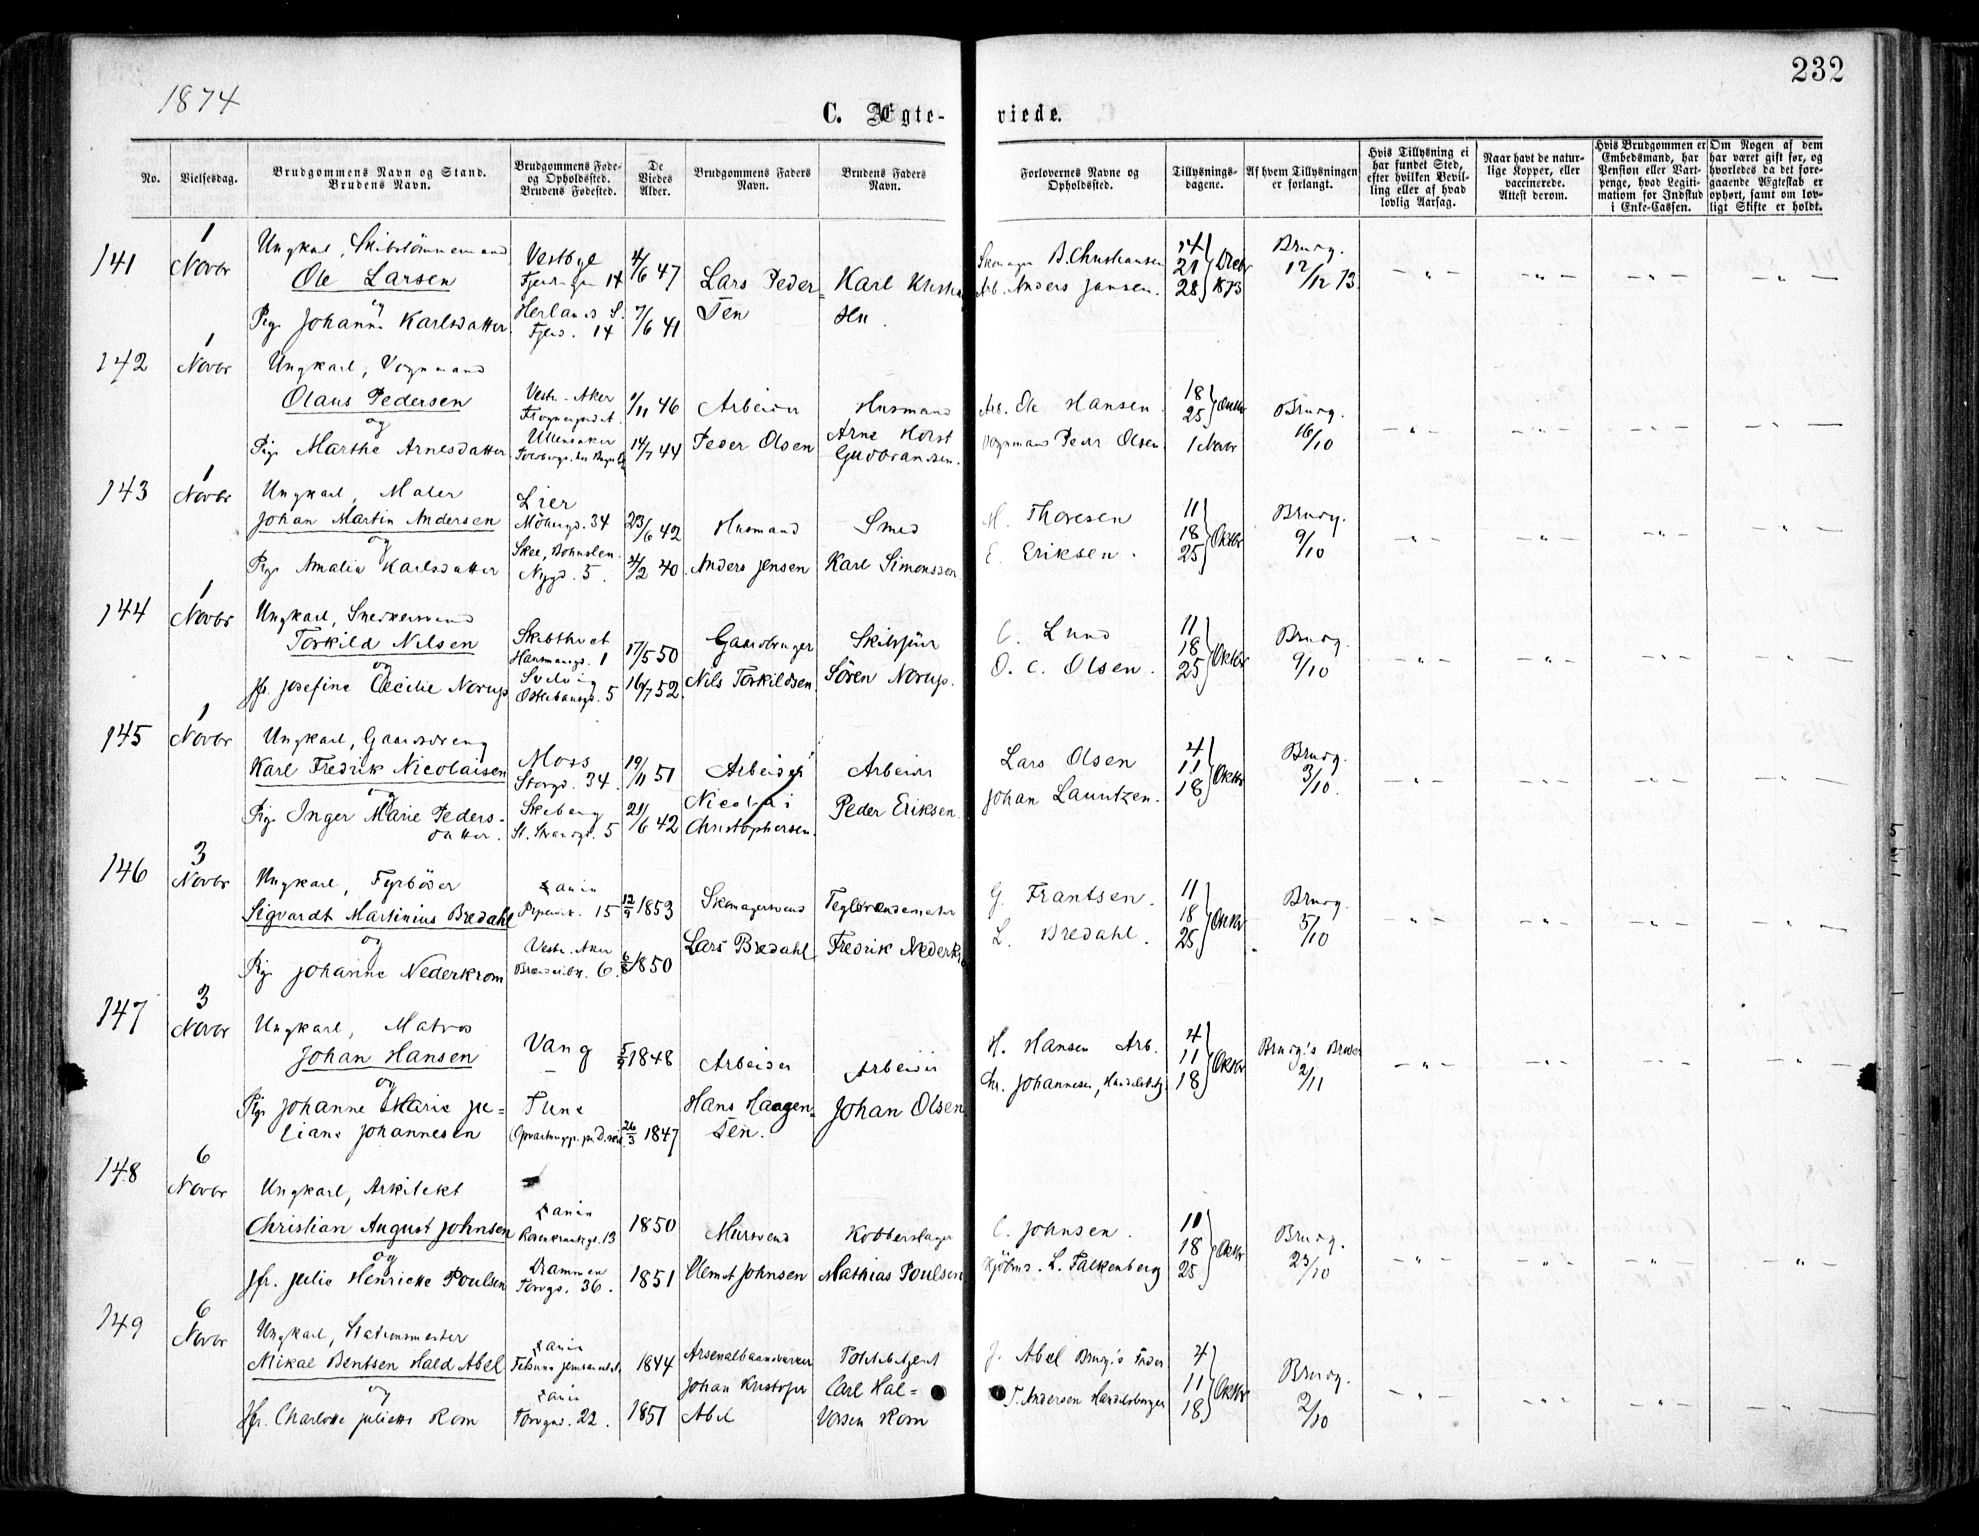 232
1874
C. Ægte- viede.
No.
Vielsesdag.
Brudgommens Navn og Stand.
Brudens Navn.
Brudgommens Føde-
og Opholdssted.
Brudens Fødested.
De
Viedes
Alder.
Brudgommens Faders
Navn.
Brudens Faders
Navn.
Forlovernes Navne og
Opholdssted.
Tillysnings-
dagene.
Af hvem Tillysningen
er forlangt.
Hvis Tillysning ei
har fundet Sted,
efter hvilken Bevil-
ling eller af hvad
lovlig Aarsag.
Naar havt de natur-
lige Kopper, eller
vaccinerede.
Attest derom.
Hvis Brudgommen er
Embedsmand, har
Pension eller Vart-
penge, hvad Legiti-
mation for Indskud
i Enke-Cassen.
Om Nogen af dem
har været gift før, og
hvorledes da det fore-
gaaende Ægteskab er
ophørt, samt om lov-
ligt Skifte er holdt.
141
1 Novbr
Ungkarl, Skibstömmermand
Ole Larsen
og
Pige Johanne Karlsdatter
Vestbye
14
14
4/6 47
7/6 41
Lars Peder=
sen
Karl
B. Christiansen
Arb. Anders Jansen.
14
21
28
Decbr
1873
Brudg.
12/12 73.
142
1 Novbr
Ungkarl, Vognmand
Olaus Pedersen
og
Pige Marthe Arnesdatter
Vestr. Aker
Ullensaker
1/11 46
14/7 44
Arbeider
Peder Olsen
Husmand
Arne Horst
Gudbrandsen.
Arb. Ole Hansen.
Vognmand Peder Olsen
18
25
Oktbr
1 Novbr
Brudg.
16/10
143
1 Novbr
Ungkarl, Maler
Johan Martin Andersen
og
Pige Amalia Karlsdatter
Lier
Möllergd. 34
Skee, Bohuslen.
Nygd. 5.
23/6 42
4/2 40
Husmand
Anders Jensen
Smed
Karl Simonsson
H. Thoresen
E. Eriksen.
11
18
25
Oktbr
Brudg.
9/10
144
1 Novbr
Ungkarl, Snedkersvend
Torkild Nilsen
og
Jfr. Josefine Cecilie Norup
Skibthvet
Hausmansgd. 1
Svelvig
5
17/5 50
16/7 52.
Gaardbruger
Nils Torkildsen
Skibsfürer
Sören Norup.
C. Lund
O. C. Olsen.
11
18
25
Oktbr
Brudg.
9/10
145
1 Novbr
Ungkarl, Gaardsdreng
Karl Fredrik Nicolaisen
og
Pige Inger Marie Peders-
datter.
Moss
Storgd. 34.
Skeberg
St. Strandgd. 5
19/11 51
21/6 42
Arbeider
Nicolai
Christophersen.
Arbeider
Peder Eriksen
Lars Olsen
Johan Lauritzen.
4
11
18
Oktbr
Brudg.
3/10.
146
3 Novbr
Ungkarl, Fyrböder
Sigvardt Martinius Bredahl
og
Pige Johanne Nederkrom
Xania
Pipervik. 15
Vestr. Aker
6.
12/9 1853
6/8 1850
Skomagersvend
Lars Bredahl
Teglbrændemester
Fredrik Nederkr
G. Frantsen.
L. Bredahl.
11
18
25
Oktbr
Brudg.
5/10
147
3 Novbr
Ungkarl, Matros
Johan Hansen
og
Pige Johanne Marie Ju=
liane Johannesen
Vang
Tune
5/9 1848
26/3 1847
Arbeider
Hans Haagen-
sen.
Arbeider
Johan Olsen
H. Hansen Arb.
Chr. Johannesen, Handelsbetj.
4
11
18
Oktbr
Brudg.'s Broder
2/11
148
6 Novbr
Ungkarl, Arkitekt
Christian August Johnsen
og
Jfr. Julie Henriette Poulsen
Xania
Rosenkrantzgd. 13
Drammen
Torvgd. 36.
1850
1851
Mursvend
Clemet Johnsen
Kobberslager
Mathias Poulsen
C. Johnsen.
Kjöbmd. L. Falkenberg
11
18
25
Oktbr
Brudg.
23/10
149
6 Novbr
Ungkarl, Stationsmester
Mikal Bentsen Hald Abel
og
Jfr. Charlotte Juliette Rom
Xania
Xania
Torvgd. 22.
1844
1851
Arsenalhaandværker
Johan Kristofer
Abel
Politibetjent
Carl Hal=
vorsen Rom
J. Abel Brudg.'s Fader
T. Andersen Handelsborger
4
11
18
Oktbr
Brudg.
2/10